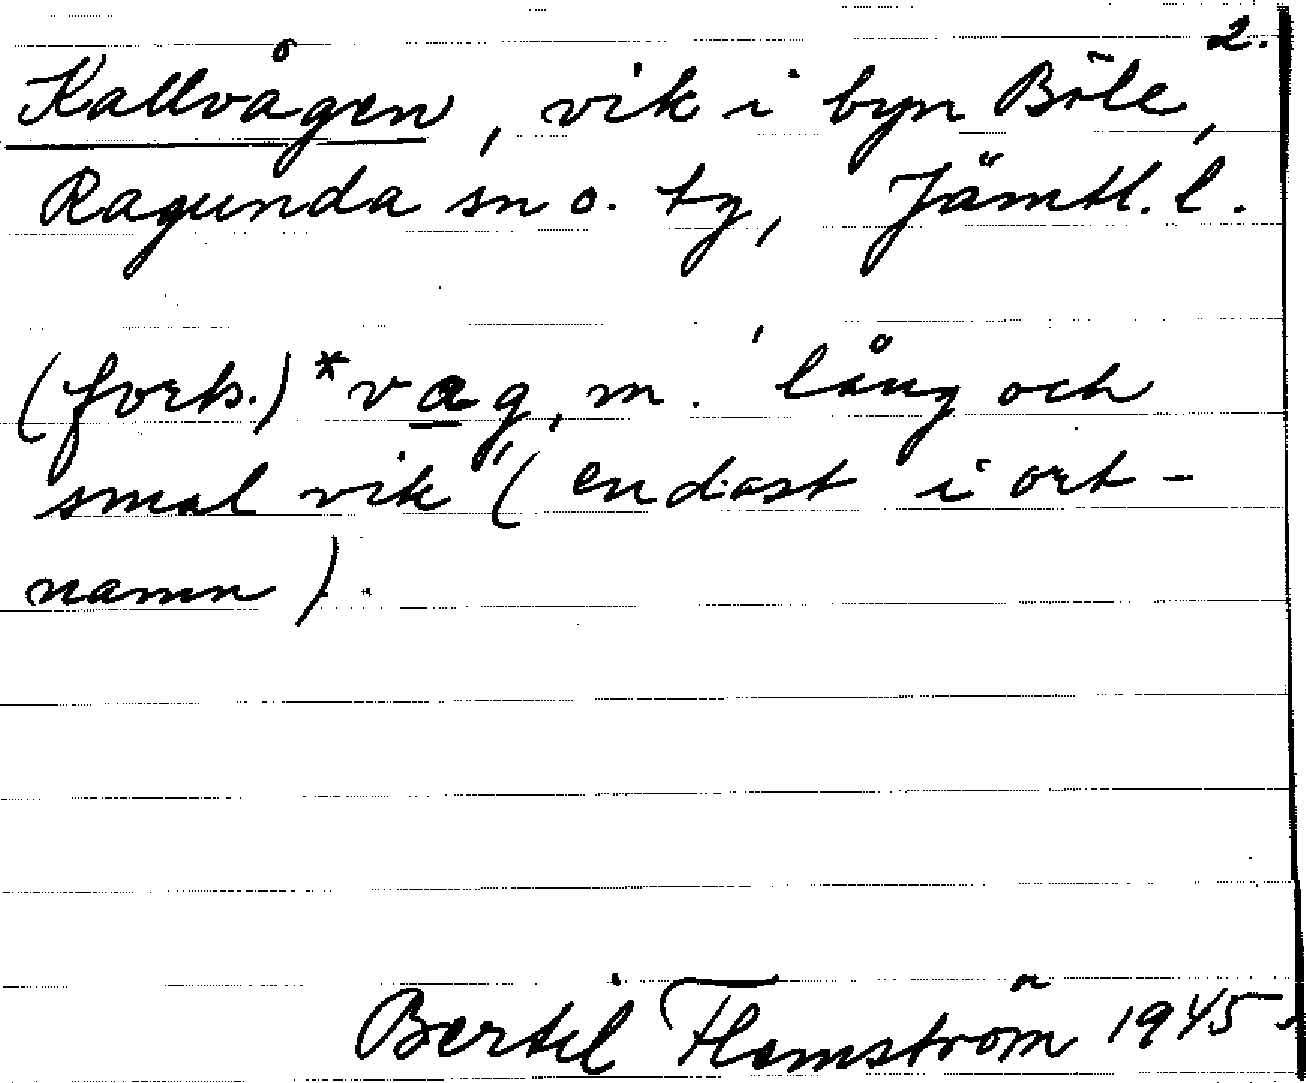 2.
Kallvågen, vik i byn Böle,
Ragunda sn o. tg, Jämtl. l.
(forts.) *vag, m. 'lång och
smal vik' (endast i ort-
namn).
Bertil Flemström 1945.